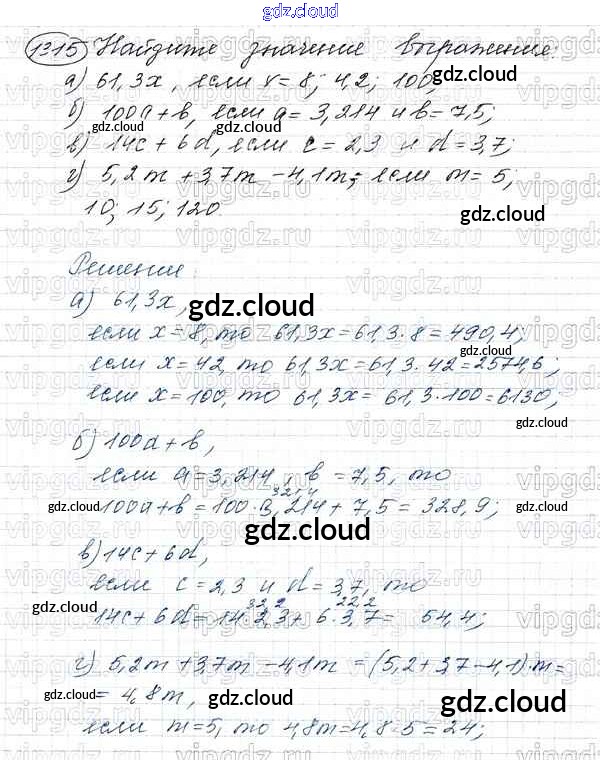 gdz.cloud
1315 Найдите значение выражение:
а) 61,3x, если x = 8; 4,2; 100;
б) 100a + b, если a = 3,214 и b = 7,5;
gdz.cloud gdz.cloud
в) 14c + 6d, если c = 2,3 и d = 3,7;
г) 5,2m + 3,7m - 4,1m; если m = 5;
10; 15; 120
gdz.cloud
Решение:
а) 61,3x,
gdz.cloud
если x = 8, то 61,3x = 61,3 · 8 = 490,4;
gdz.cloud
если x = 42, то 61,3x = 61,3 · 42 = 2574,6;
если x = 100, то 61,3x = 61,3 · 100 = 6130;
gdz.cloud
б) 100a + b,
если a = 3,214, b = 7,5, то
321,4
100a + b = 100 · 3,214 + 7,5 = 328,9;
gdz.cloud gdz.cloud
gdz.cloud
в) 14c + 6d,
если c = 2,3 и d = 3,7, то
gdz.cloud
32,2 22,2
14c + 6d = 14 · 2,3 + 6 · 3,7 = 54,4;
gdz.cloud
г) 5,2m + 3,7m - 4,1m = (5,2 + 3,7 - 4,1) · m =
= 4,8m,
gdz.cloud gdz.cloud
если m = 5, то 4,8m = 4,8 · 5 = 24;
gdz.cloud